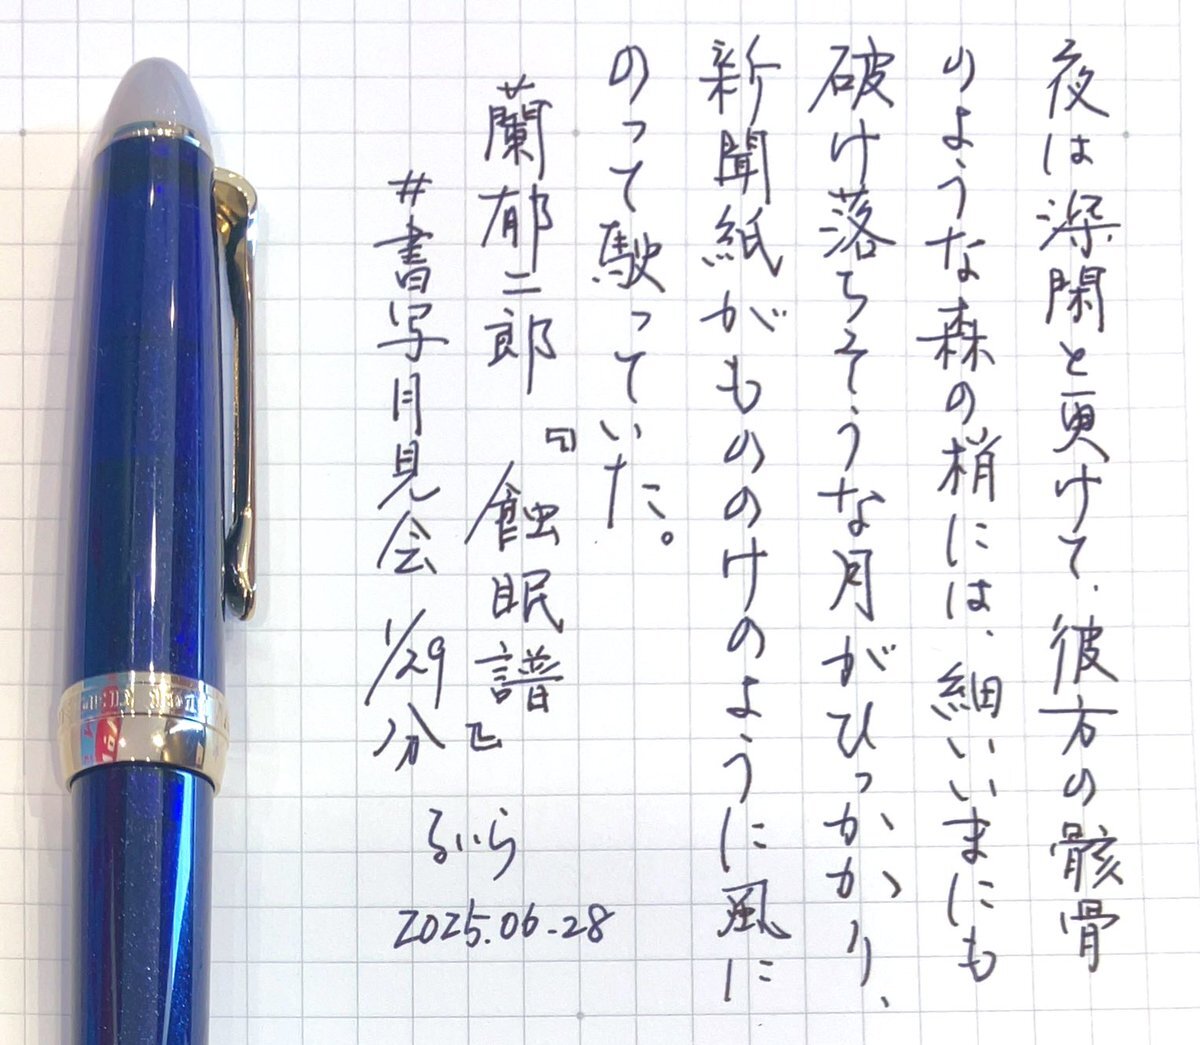 夜は深閑と更けて、彼方の骸骨
のような森の梢には、細いいまにも
破け落ちそうな月がひっかかり、
新聞紙がもののけのように風に
のって駛っていた。
蘭郁二郎『蝕眠譜』
#書写月見会 1/29分
るいら
2025.06.28